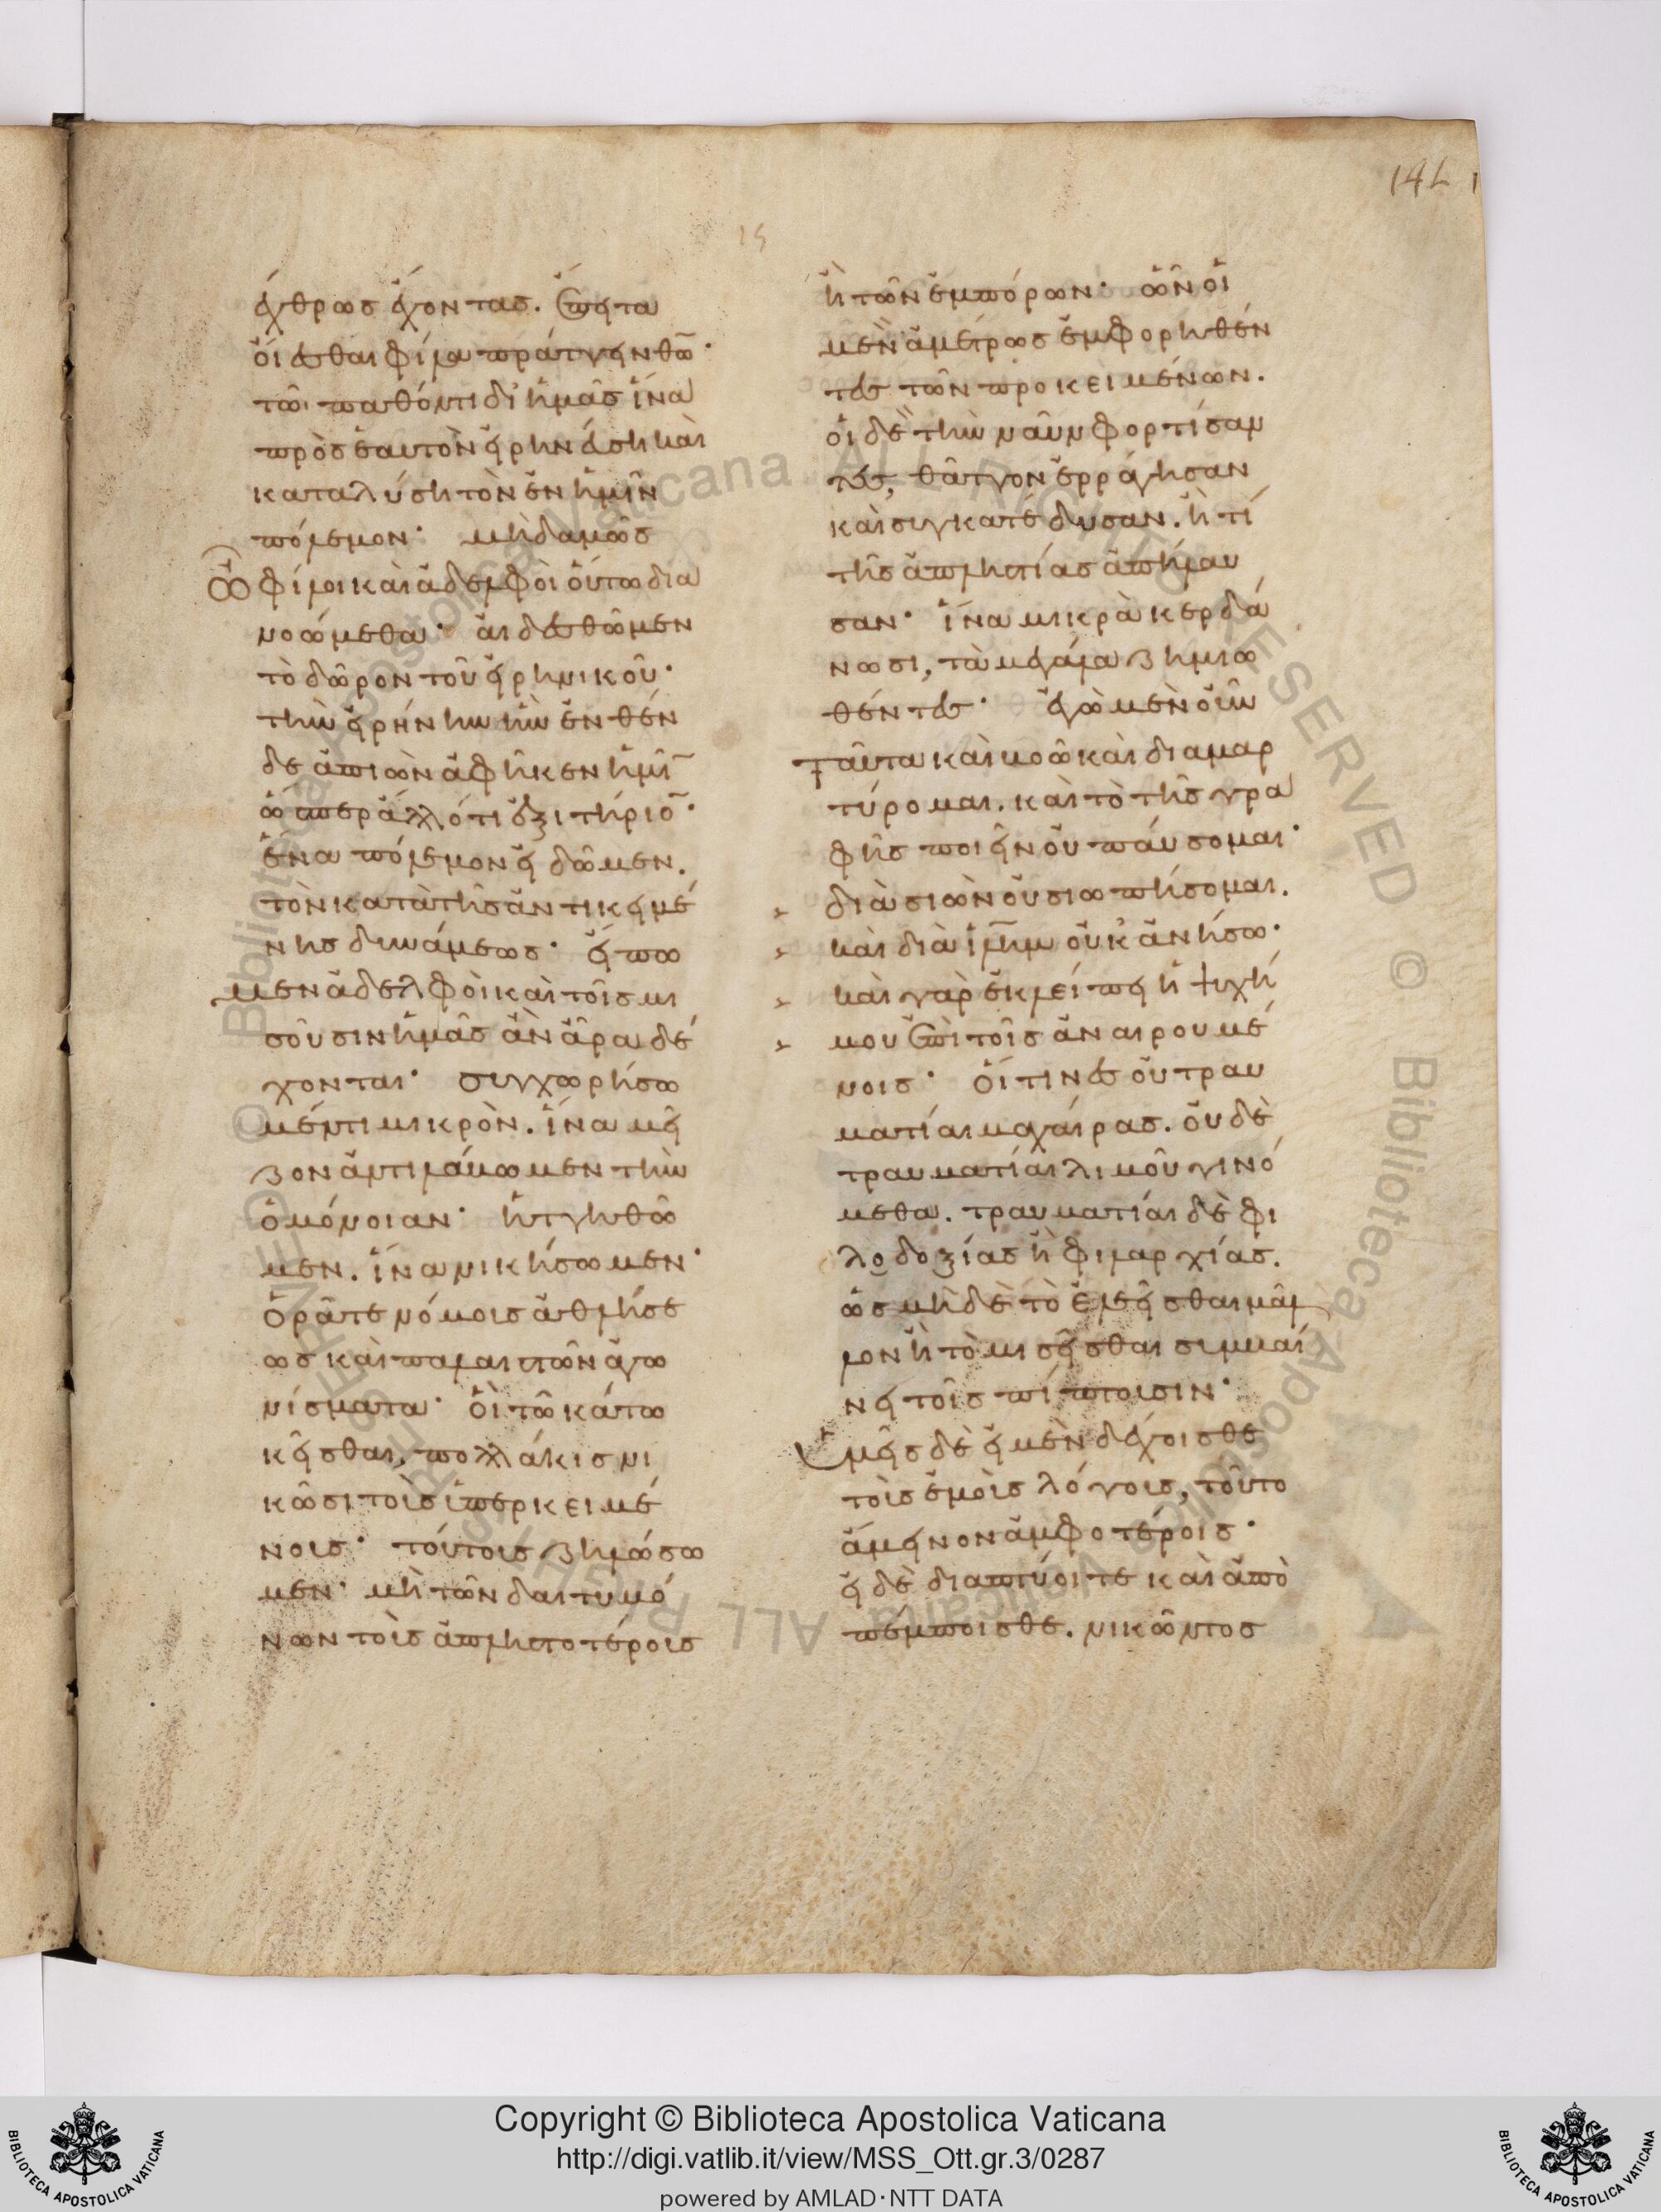 14L 1
15
ἐχθρῶς ἔχοντας. ἔπειτα
οἴεσθαι φίλα πράττειν θ̅ω̅·
τῶι παθόντι δι' ἡμᾶς ἵνα
πρὸς ἑαυτὸν εἰρηνεύσῃ καὶ
καταλύσῃ τὸν ἐν ἡμῖν
πόλεμον· μηδαμῶς
ὦ φίλοι καὶ ἀδελφοὶ οὕτω δια
νοώμεθα· αἰδεσθῶμεν
τὸ δῶρον τοῦ εἰρηνικοῦ·
τὴν εἰρήνην ἣν ἐνθέν
δε ἀπιὼν ἀφῆκεν ἡμῖ̅
ὥσπερ ἄλλό τι ἐξιτήριο̅·
ἕνα πόλεμον εἰδῶμεν.
τὸν κατὰ τῆς ἀντικειμέ
νης δυνάμεως· εἴπω
μεν ἀδελφοὶ καὶ τοῖς μι
σοῦσιν ἡμᾶς ἂν ἄρα δέ
χονται· συγχωρήσω
μέν τι μικρὸν. ἵνα μεῖ
ζον ἀντιλάβωμεν τὴν
ὁμόνοιαν· ἡττηθῶ
μεν. ἵνα νικήσωμεν·
ὁρᾶτε νόμοις ἀθλήσε
ως καὶ παλαιστῶν ἀγω
νίσματα· οἳ τῶ κάτω
κεῖσθαι, πολλάκις νι
κῶσι τοὺς ὑπερκειμέ
νους· τούτους ζηλώσω
μεν· μὴ τῶν δαιτυμό
νων τοὺς ἀπληστοτέρους
ἢ τῶν ἐμπόρων· ὧν οἱ
μὲν ἀμέτρως ἐμφορηθέν
τες τῶν προκειμένων.
οἱ δὲ τὴν ναῦν φορτίσαν
τες, θᾶττον ἐρράγησαν
καὶ συγκατέδυσαν. ἢ τί
τῆς ἀπληστίας ἀπήλαυ
σαν· ἵνα μικρὰ κερδά
νωσι, τὰ μεγάλα ζημιω
θέντες· ἐγὼ μὲν οὖν
ταῦτα καὶ βοῶ καὶ διαμαρ
τύρομαι. καὶ τὸ τῆς γρα
φῆς ποιεῖν οὐ παύσομαι·
διὰ σιὼν οὐ σιωπήσομαι.
καὶ διὰ ἱλ̅η̅μ οὐκ ἀνήσω·
καὶ γὰρ ἐκλείπει ἡ ψυχή
μου ἐπὶ τοῖς ἀναιρουμέ
νοις· οἵτινες οὐ τραυ
ματίαι μαχαίρας. οὐδὲ
τραυματίαι λιμοῦ γινό
μεθα. τραυματίαι δὲ φι
λοδοξίας ἢ φιλαρχίας.
ὡς μηδὲ τὸ ἐλεεῖσθαι μᾶλ
λον ἢ τὸ μισεῖσθαι συμβαί
νει τοῖς πίπτουσιν·
Ὑμεῖς δὲ εἰ μὲν δέχοισθε
τοὺς ἐμοὺς λόγους, τοῦτο
ἄμεινον ἀμφοτέροις·
εἰ δὲ διαπτύοιτε καὶ ἀπο
πέμποισθε. νικῶντος
Copyright © Biblioteca Apostolica Vaticana
http://digi.vatlib.it/view/MSS_Ott.gr.3/0287
powered by AMLAD·NTT DATA
BIBLIOTECA APOSTOLICA VATICANA
BIBLIOTECA APOSTOLICA VATICANA